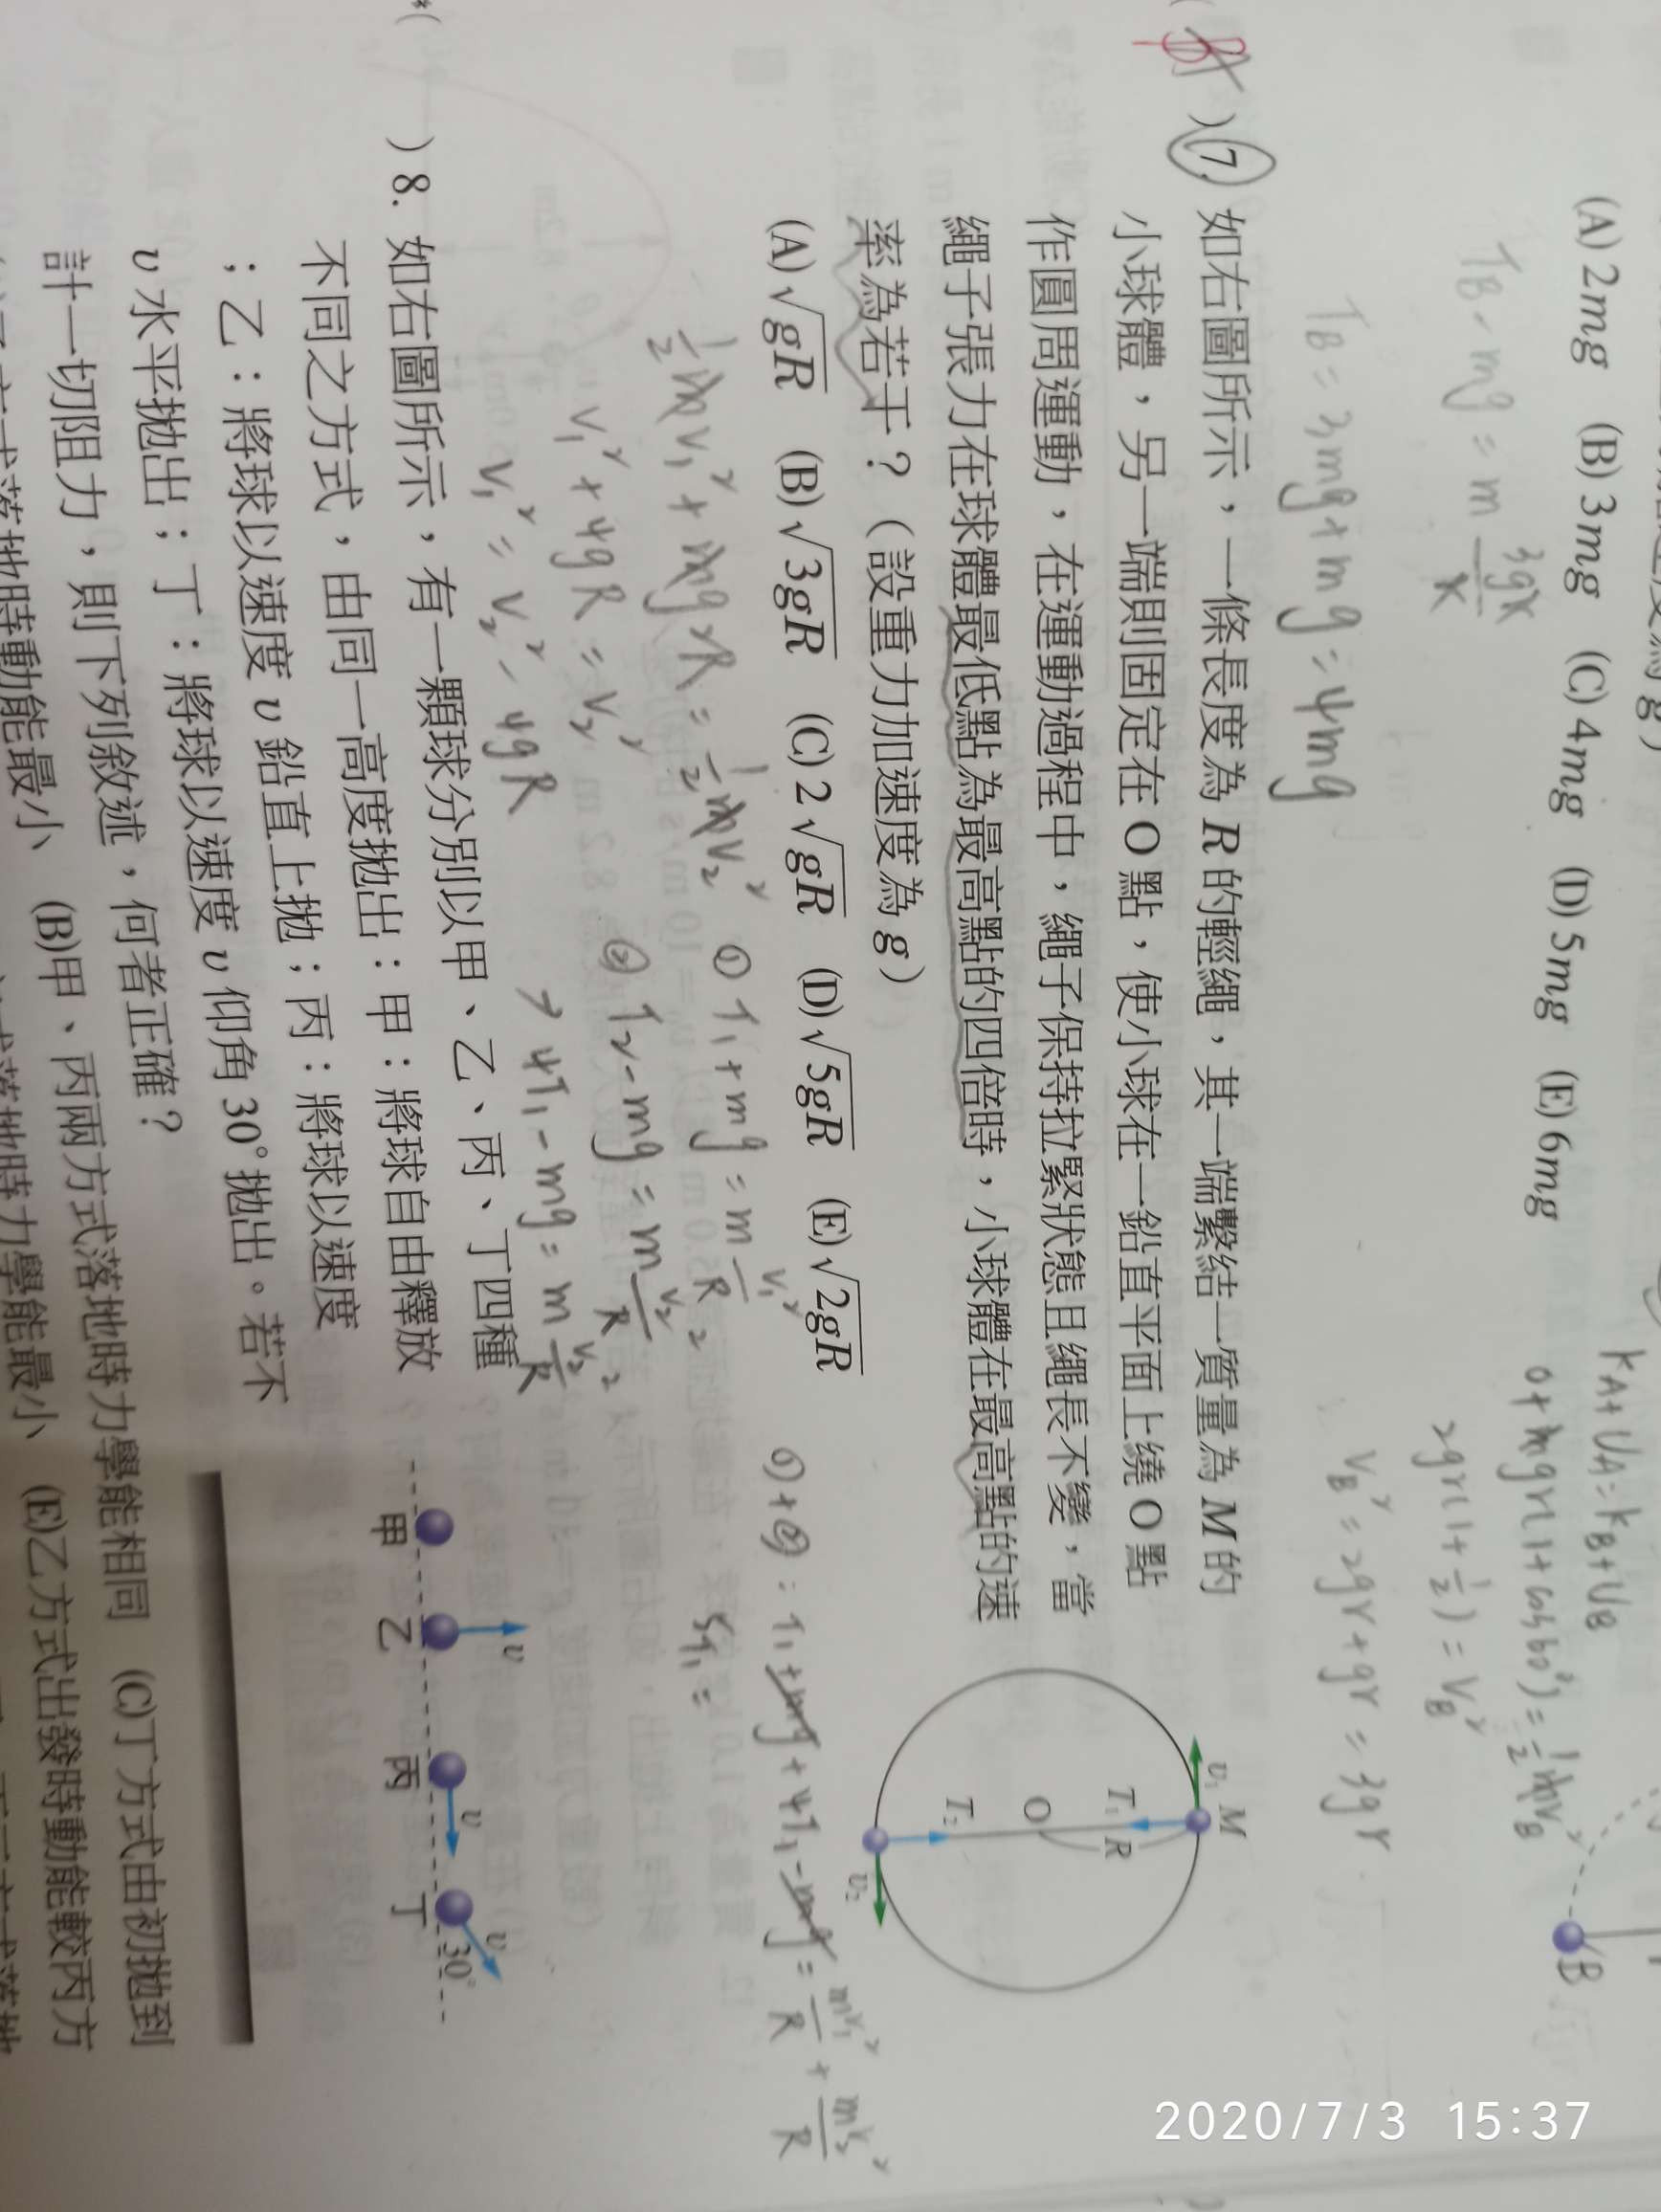 (A) 2mg (B) 3mg (C) 4mg (D) 5mg (E) 6mg
K_A + U_A = K_B + U_B
0 + mgr(1 + cos60°) = 1/2 mv_B²
2gr(1 + 1/2) = v_B²
v_B² = 2gr + gr = 3gr
B
T_B - mg = m 3gr/r
T_B = 3mg + mg = 4mg
) 7. 如右圖所示，一條長度為 R 的輕繩，其一端繫結一質量為 M 的
小球體，另一端則固定在 O 點，使小球在一鉛直平面上繞 O 點
作圓周運動，在運動過程中，繩子保持拉緊狀態且繩長不變，當
繩子張力在球體最低點為最高點的四倍時，小球體在最高點的速
率為若干？（設重力加速度為 g）
(A) √gR (B) √3gR (C) 2√gR (D) √5gR (E) √2gR
v₁ M
T₁ R
O
T₂
v₂
1/2 mv₁² + mg2R = 1/2 mv₂²
v₁² + 4gR = v₂²
v₁² = v₂² - 4gR
① T₁ + mg = m v₁²/R
② T₂ - mg = m v₂²/R
→ 4T₁ - mg = m v₂²/R
①+②: T₁ + mg + 4T₁ - mg = mv₁²/R + mv₂²/R
5T₁ =
) 8. 如右圖所示，有一顆球分別以甲、乙、丙、丁四種
不同之方式，由同一高度拋出：甲：將球自由釋放
；乙：將球以速度 v 鉛直上拋；丙：將球以速度
v 水平拋出；丁：將球以速度 v 仰角 30° 拋出。若不
計一切阻力，則下列敘述，何者正確？
v v v
甲 乙 丙 丁 30°
(B)甲、丙兩方式落地時力學能相同 (C)丁方式由初拋到
方式落地時動能最小
(E)乙方式出發時動能較丙方
2020/7/3 15:37